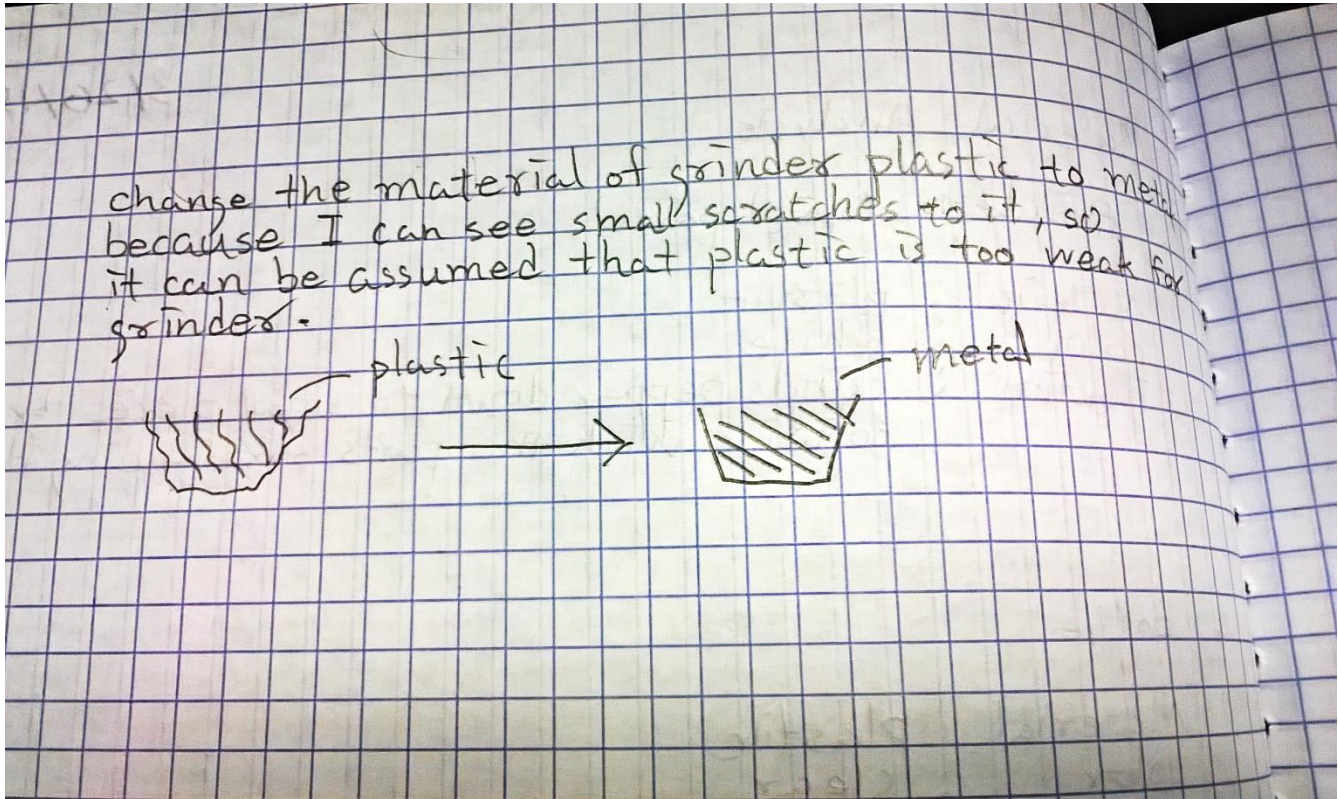 change the material of grinder plastic to metal
because I can see small scratches to it, so
it can be assumed that plastic is too weak for
grinder.
plastic
metal